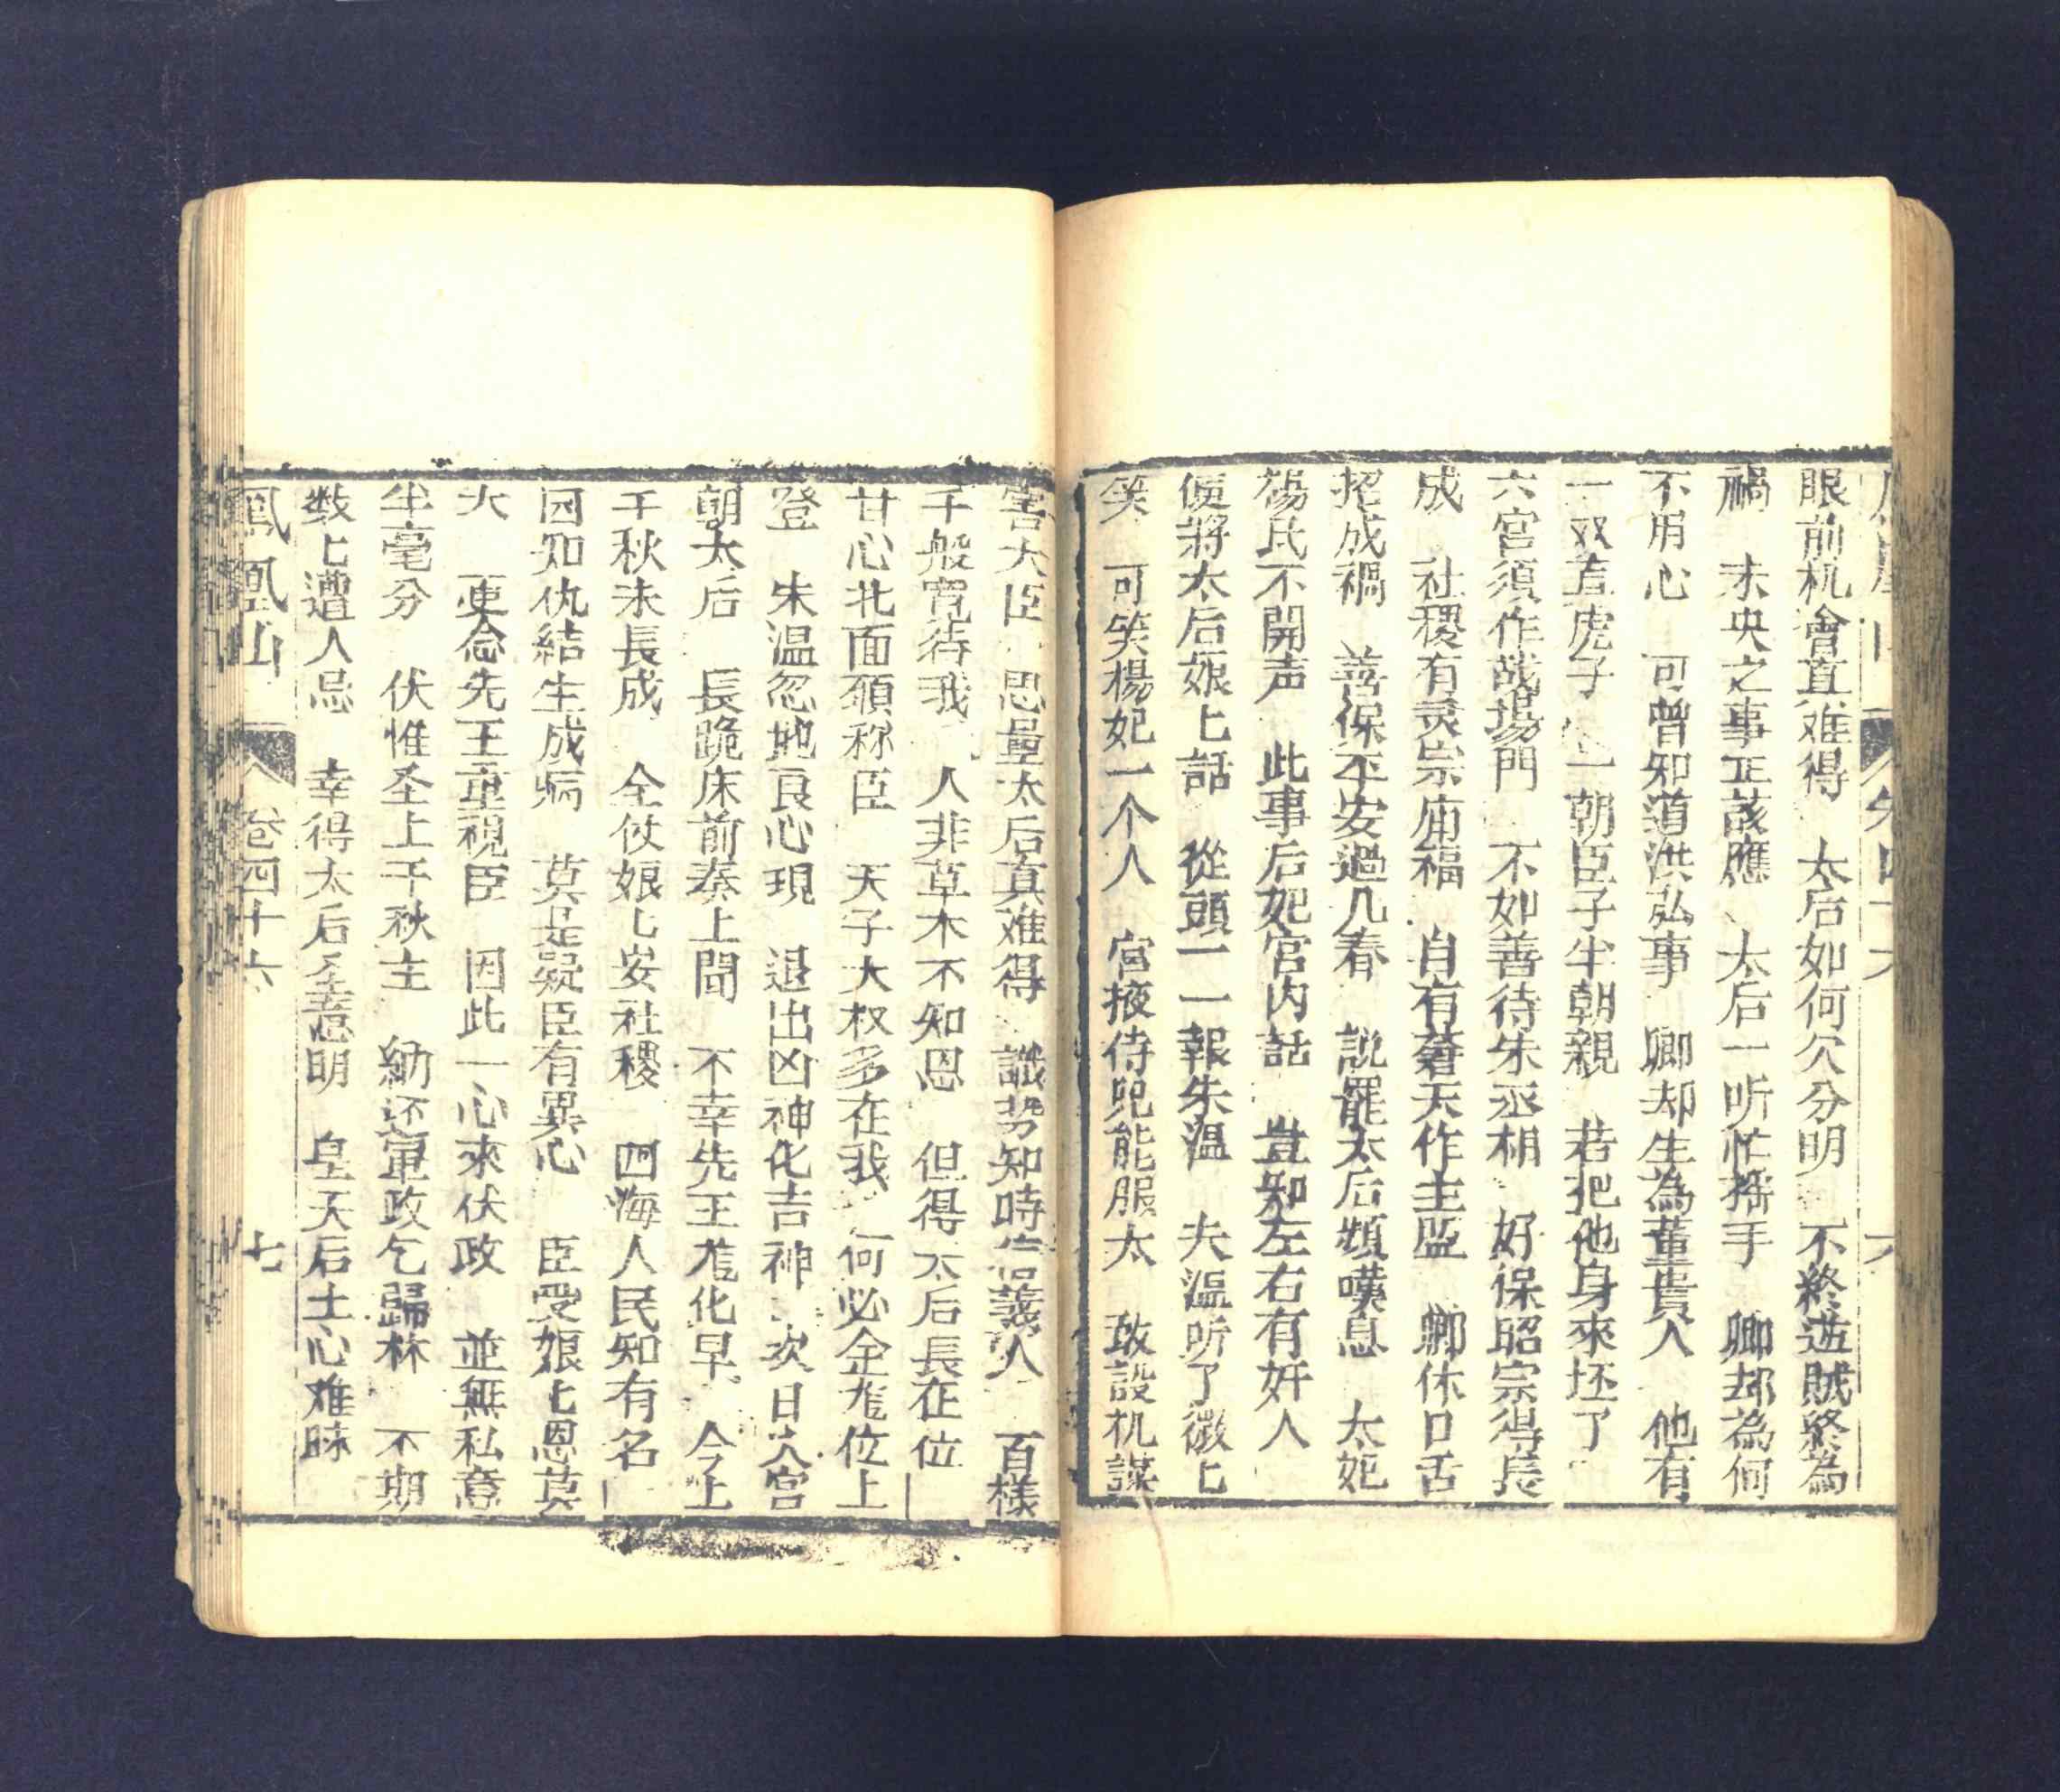 眼前机會直难得　太后如何欠分明　不終逆賊終為
禍　未央之事正該應　太后一听忙摇手　卿却為何
不用心　可曾知道洪弘事　卿却生為董貴人　他有
一双直虎子　一朝臣子半朝親　若把他身來坯了
六宮須作战塲門　不如善待朱丞相　好保昭宗得長
成　社稷有灵宗庙福　自有蒼天作主盟　卿休口舌
招成禍　善保平安過几春　説罷太后頻嘆息　太妃
楊氏不開声　此事后妃宮内話　豈知左右有奸人
便將太后娘匕話　從頭一一報朱温　夫温听了微匕
笑　可笑楊妃一个人　宮掖侍児能服太　敢設机謀
害大臣　思量太后真难得　識势知時信義人　百樣
千般寛待我　人非草木不知恩　但得太后長在位
甘心北面願称臣　天子大权多在我　何必金龙位上
登　朱温忽地良心現　退出凶神化吉神　次日入宮
朝太后　長跪床前奏上聞　不幸先王龙化早　今上
千秋未長成　全仗娘匕安社稷　四海人民知有名
因知仇結生成病　莫是疑臣有異心　臣受娘匕恩莫
大　更念先王重視臣　因此一心來伏政　並無私意
半毫分　伏惟圣上千秋主　納还軍政乞歸林　不期
数匕遭人忌　幸得太后圣慈明　皇天后土心难昧
鳳凰山　卷四十六　七